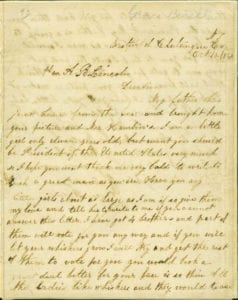 Hon A B Lincoln
My father has
just home from the fair and brought home
your picture and Mr. Hamlin's. I am a little
girl only eleven years old, but want you should
be President of the United States very much
so I hope you wont think me very bold to write to
such a great man as you are. Have you any
little girls about as large as I am if so give them
my love and tell her to write to me if you cannot
answer this letter. I have got 4 brothers and part of
them will vote for you any way and if you will
let your whiskers grow I will try and get the rest
of them to vote for you you would look a
great deal better for your face is so thin. All
the ladies like whiskers and they would